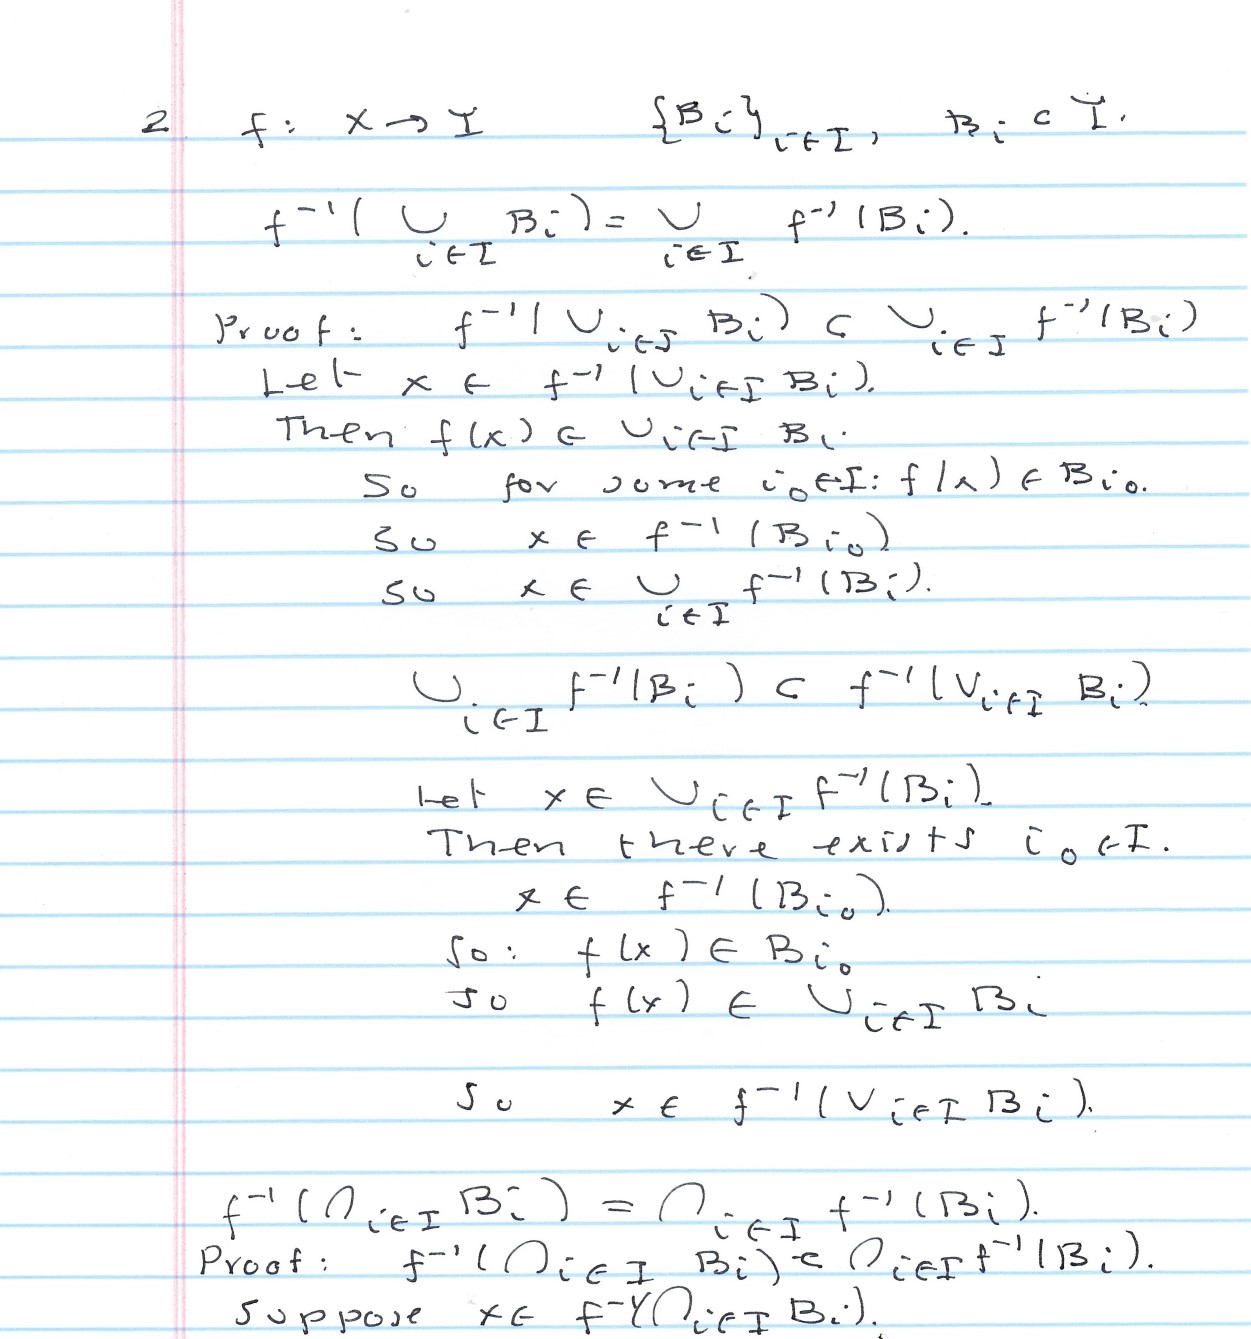 2 f: X → Y {Bi}i∈I, Bi ⊂ Y.
f⁻¹( ∪ Bi) = ∪ f⁻¹(Bi).
i∈I i∈I
Proof: f⁻¹(∪i∈I Bi) ⊂ ∪i∈I f⁻¹(Bi)
Let x ∈ f⁻¹(∪i∈I Bi).
Then f(x) ∈ ∪i∈I Bi.
So for some i₀∈I: f(x) ∈ Bi₀.
So x ∈ f⁻¹(Bi₀)
so x ∈ ∪ f⁻¹(Bi).
i∈I
∪i∈I f⁻¹(Bi) ⊂ f⁻¹(∪i∈I Bi)
Let x∈ ∪i∈I f⁻¹(Bi).
Then there exists i₀∈I.
x ∈ f⁻¹(Bi₀).
So: f(x) ∈ Bi₀
So f(x) ∈ ∪i∈I Bi
So x ∈ f⁻¹(∪i∈I Bi).
f⁻¹(∩i∈I Bi) = ∩i∈I f⁻¹(Bi).
Proof: f⁻¹(∩i∈I Bi) ⊂ ∩i∈I f⁻¹(Bi).
Suppose x∈ f⁻¹(∩i∈I Bi).